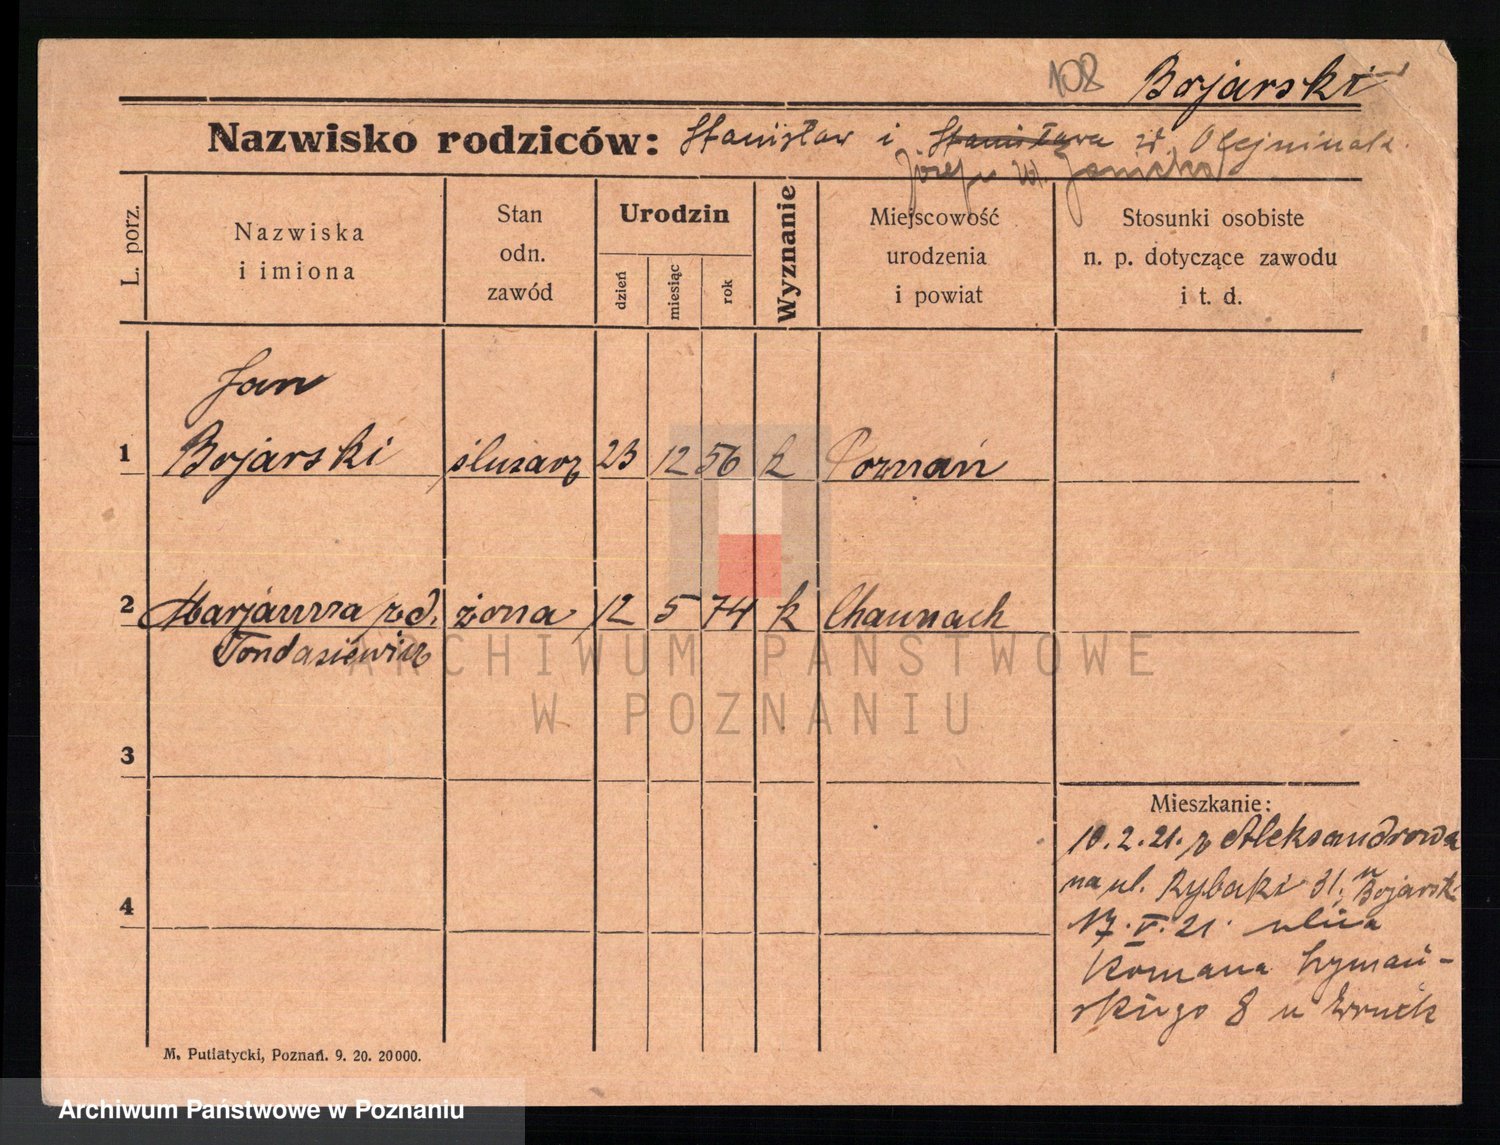 108 Bojarski
Nazwisko rodziców: Stanisław i Stanisława zd. Olejniczak
Józef u. Janicka
L. porz.
Nazwiska
i imiona
Stan
odn.
zawód
Urodzin
dzień
miesiąc
rok
Wyznanie
Miejscowość
urodzenia
i powiat
Stosunki osobiste
n. p. dotyczące zawodu
i t. d.
Jan
1 Bojarski ślusarz 23 12 56 k Poznań
2 Marjanna zd. żona 12 5 74 k
Tondasiewicz
ARCHIWUM PAŃSTWOWE
W POZNANIU
3
Mieszkanie:
10.2.21. z Aleksandrowa
na ul. Rybaki 31. u Bojarsk
4
17.V.21. ulica
Romana Szymań-
skiego 8 u
M. Putiatycki, Poznań. 9. 20. 20000.
Archiwum Państwowe w Poznaniu